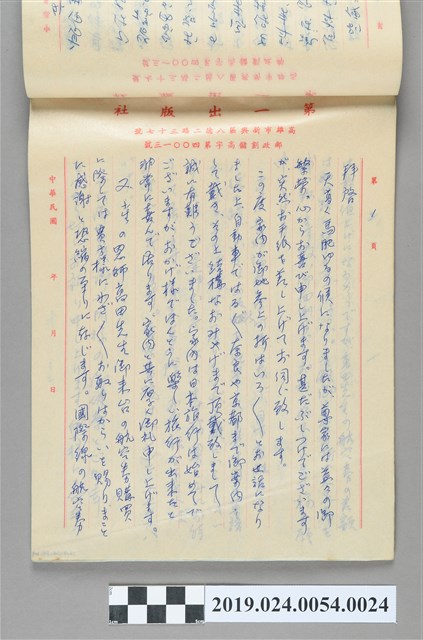 第一出版社
高雄市新興區八德二路三十七號
郵政劃撥高字第四〇〇一三號
第 1 頁
拝啓
天高く馬肥ゆるの候になりましたが、尊家には益々の御
繁栄、心からお喜び申し上げます。甚だぶしつけでございます
が、突然お手紙を差し上げてお伺い致します。
この度家内が御地参上の折はいろ〱とお世話になり
ました上、自動車ではる〲奈良や京都まで御案内を
して戴き、その上結構なおみやげまで頂戴致しまして
誠に有難うございました。家内は日本旅行は始めてで
ございますが、おかげ様でほんとうに楽しい旅行が出来たと
非常に喜んで居ります。家内と共に厚く御礼申し上げます。
又、小生の恩師高田先生御来台の航空券購買
に際しては貴方様にわざ〱お取りはからいを賜りまこと
に感謝と恐縮の至りに存じます。國際線の航空券
中華民國 年 月 日
2019.024.0054.0024